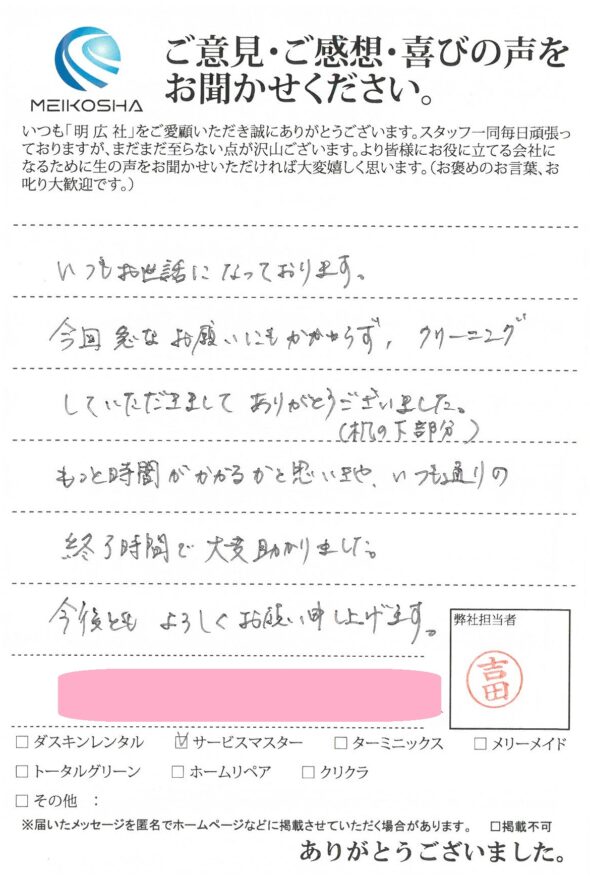 MEIKOSHA
ご意見・ご感想・喜びの声を
お聞かせください。
いつも「明広社」をご愛顧いただき誠にありがとうございます。スタッフ一同毎日頑張っ
ておりますが、まだまだ至らない点が沢山ございます。より皆様にお役に立てる会社に
なるために生の声をお聞かせいただければ大変嬉しく思います。（お褒めのお言葉、お
叱り大歓迎です。）
いつもお世話になっております。
今回急なお願いにもかかわらず、クリーニング
していただきましてありがとうございました。
（机の下部分）
もっと時間がかかるかと思いきや、いつも通りの
終了時間で大変助かりました。
今後ともよろしくお願い申し上げます。
弊社担当者
吉田
□ダスキンレンタル ☑サービスマスター □ターミニックス □メリーメイド
□トータルグリーン □ホームリペア □クリクラ
□その他 ：
※届いたメッセージを匿名でホームページなどに掲載させていただく場合があります。 □掲載不可
ありがとうございました。